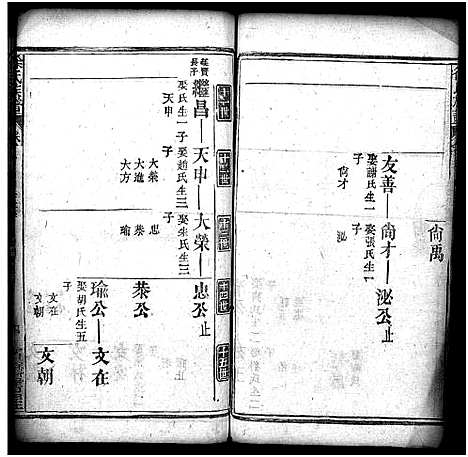 尙禹
友善—尙才—泌公止
娶謝氏生一子
尙才
娶張氏生一子
泌
十一世
十二世
十三世
十四世
十五世
廷寶長子
繼昌—天申—大榮—忠公止
娶氏生一子
天申
娶趙氏生三子
大榮
大進
大方
娶朱氏生三子
忠
恭
瑜
恭公
瑜公—文在
娶胡氏生五子
文在
文朝
文朝